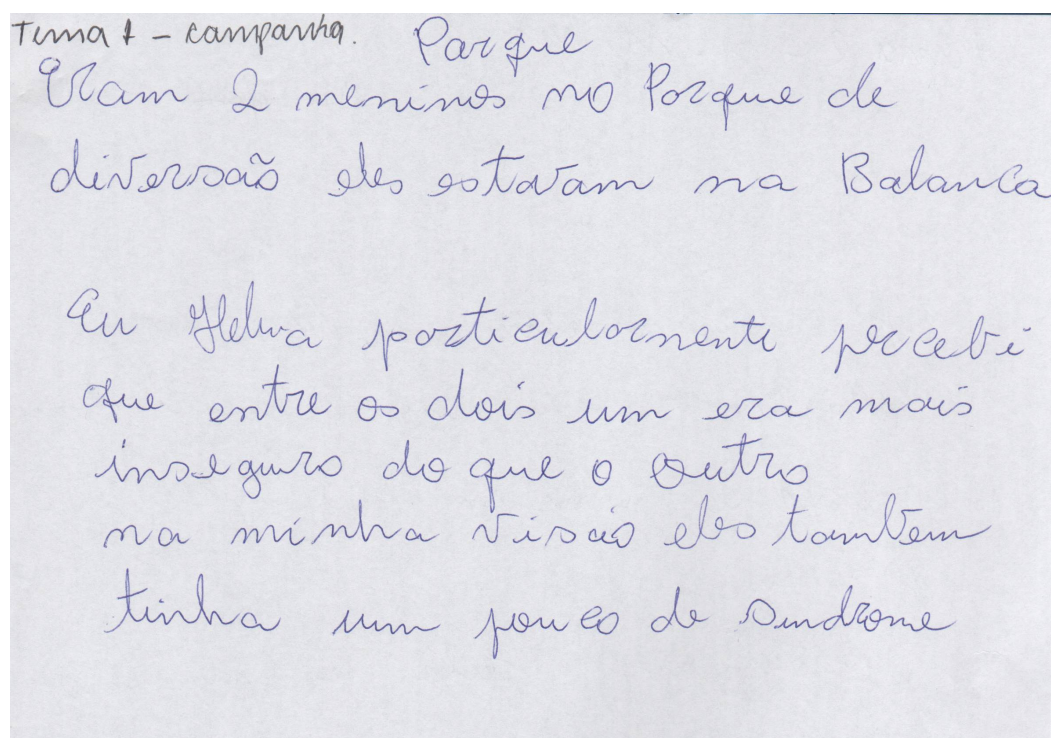 Tema 1 - campanha.
Parque
Eram 2 meninos no Parque de
diversão eles estavam na Balanca
Eu Helma particularmente percebi
que entre os dois um era mais
inseguro do que o outro
na minha visão eles tambem
tinha um pouco de sindrome